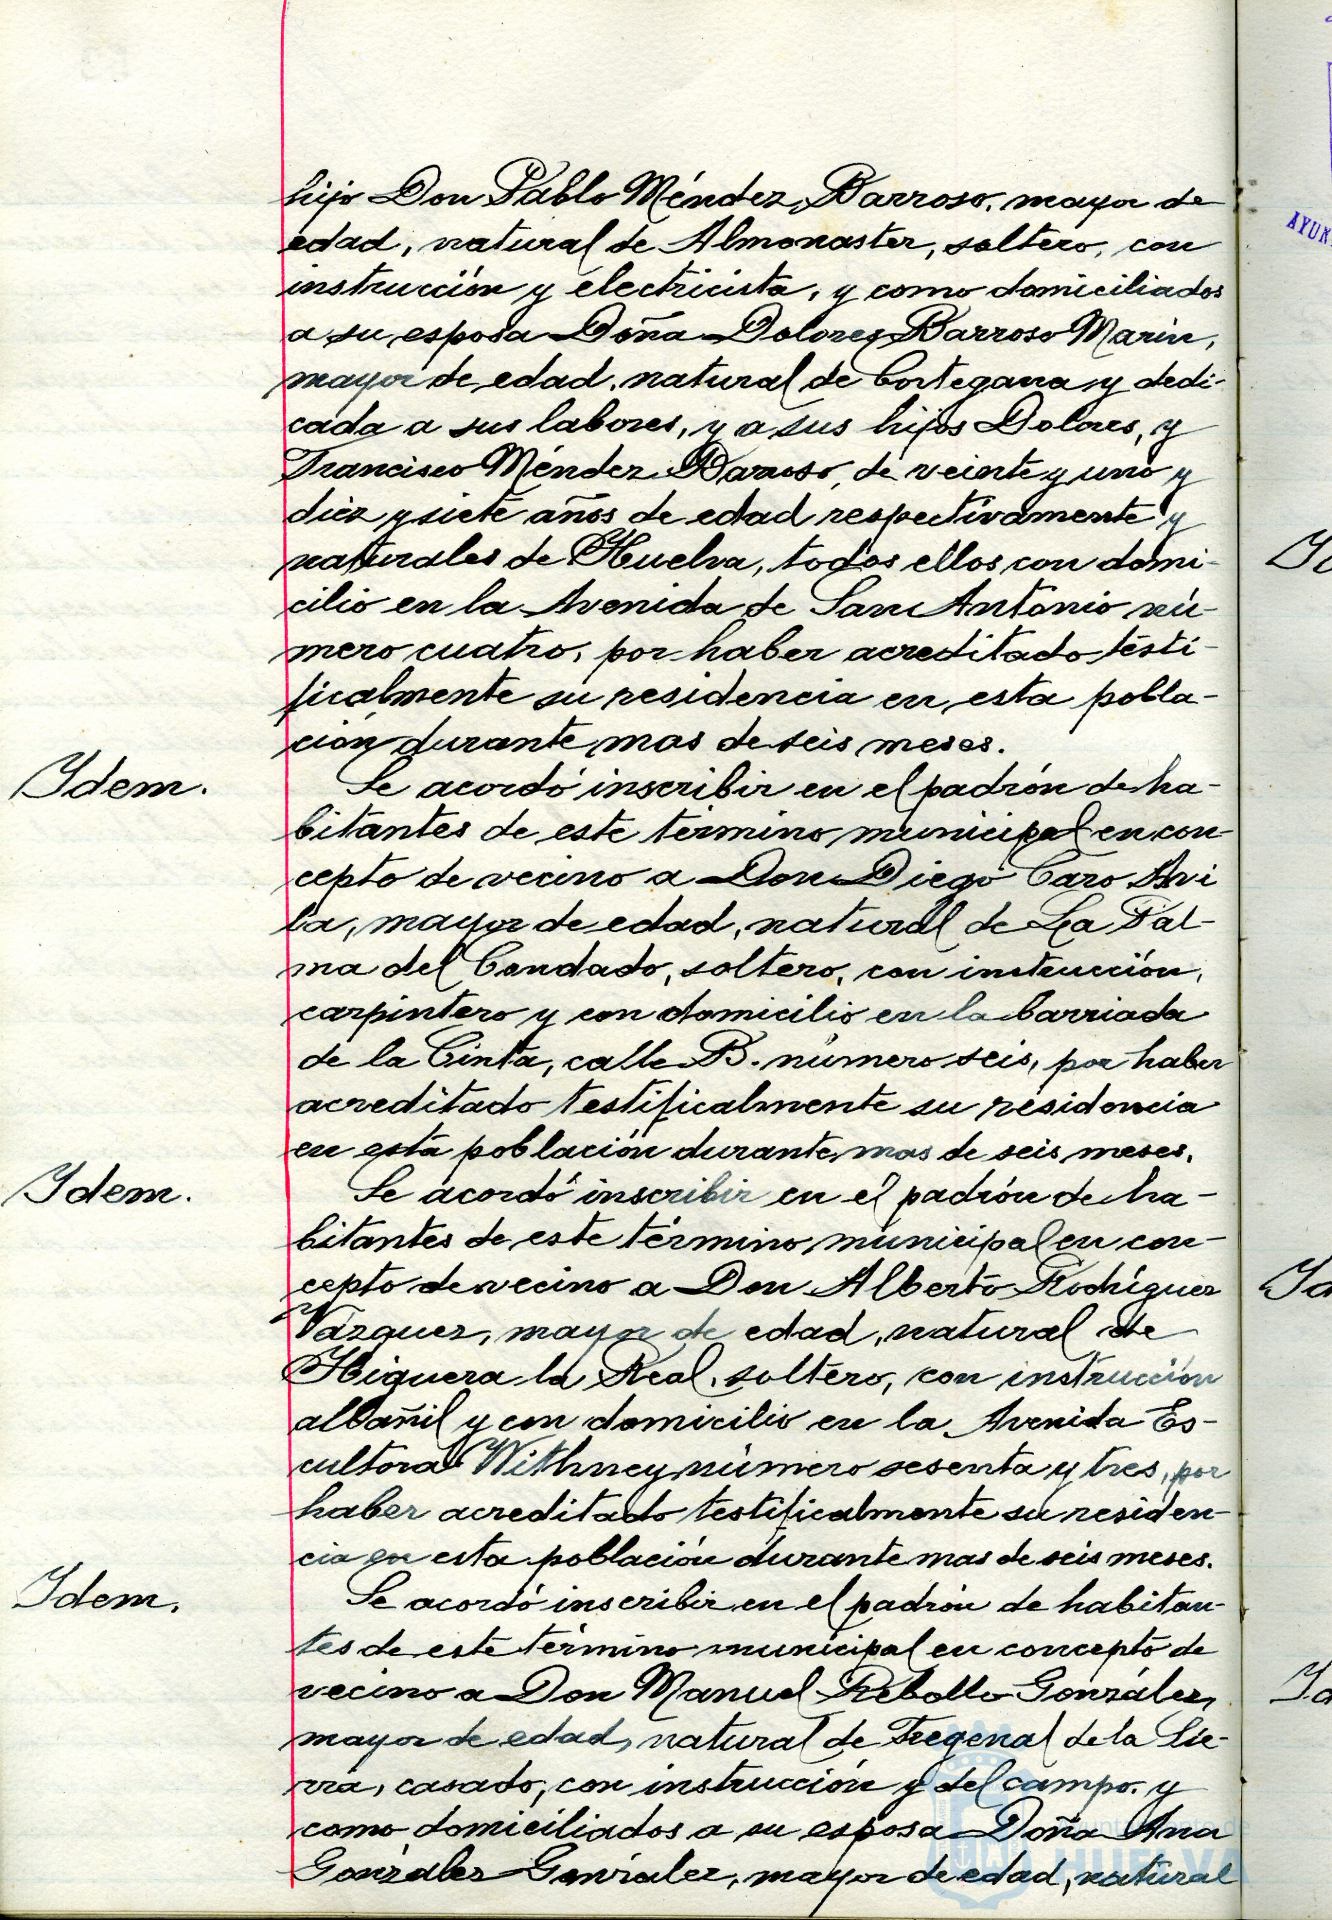 hijo Don Pablo Méndez Barroso, mayor de
edad, natural de Almonaster, soltero, con
instrucción y electricista, y como domiciliados
a su esposa Doña Dolores Barroso Marin,
mayor de edad, natural de Cortegana y dedi-
cada a sus labores, y a sus hijos Dolores, y
Francisco Méndez Barroso, de veinte y uno y
diez y siete años de edad respectivamente y
naturales de Huelva, todos ellos con domi-
cilio en la Avenida de San Antonio nú-
mero cuatro, por haber acreditado testi-
ficalmente su residencia en esta pobla-
ción durante mas de seis meses.
Idem.
Se acordó inscribir en el padrón de ha-
bitantes de este término municipal en con-
cepto de vecino a Don Diego Caro Avi
la, mayor de edad, natural de La Pal-
ma del Condado, soltero, con instrucción,
carpintero y con domicilio en la barriada
de la Cinta, calle B. número seis, por haber
acreditado testificalmente su residencia
en esta población durante mas de seis meses.
Idem.
Se acordó inscribir en el padrón de ha-
bitantes de este término municipal en con-
cepto de vecino a Don Alberto Rodríguez
Vázquez, mayor de edad, natural de
Higuera la Real, soltero, con instrucción
albañil y con domicilio en la Avenida Es-
cultora Withney número sesenta y tres, por
haber acreditado testificalmente su residen-
cia en esta población durante mas de seis meses.
Idem.
Se acordó inscribir en el padrón de habitan-
tes de este término municipal en concepto de
vecino a Don Manuel Rebollo González,
mayor de edad, natural de Fregenal de la Sie-
rra, casado, con instrucción y del campo, y
como domiciliados a su esposa Doña Ana
González González, mayor de edad, natural
HUELVA